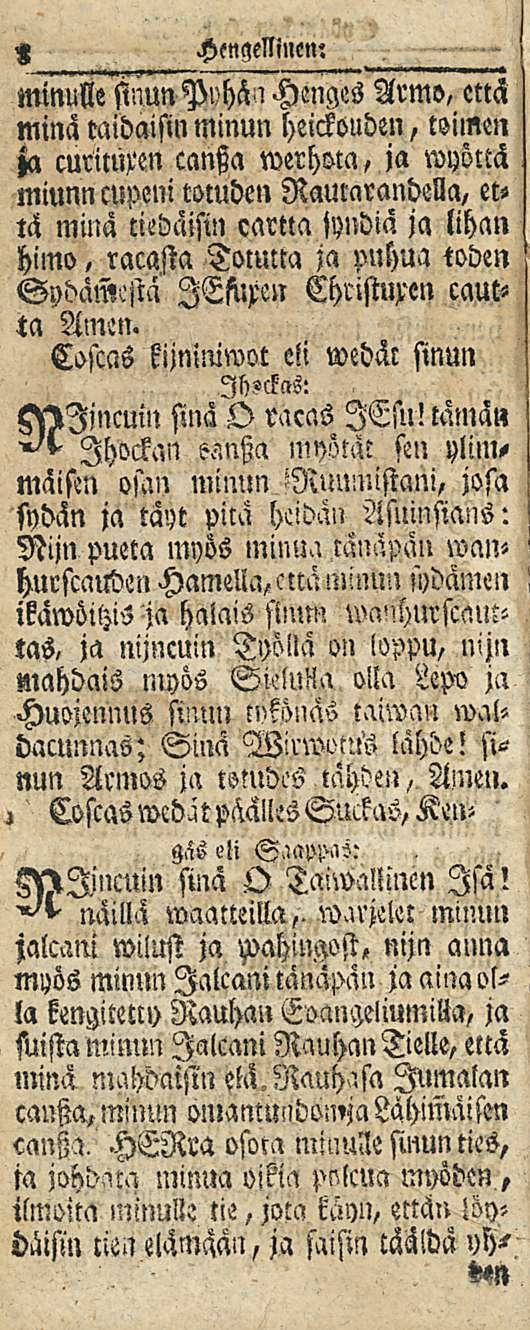 8 Hengellinen:
minulle sinun Pyhän Henges Armo, että
minä taidaisin minun heickouden, toimen
ja curituxen canßa werhota, ja wyöttä
miunn cupeni totuden Rautarandella, et-
tä minä tiedäisin cartta syndiä ja lihan
himo, racasta Totutta ja puhua toden
Sydäm̃estä JEsuxen Christuxen caut-
ta Amen.
Coscas kijniniwot eli wedät sinun
Jhockas:
NJincuin sinä O racas JEsu! tämän
Jhockan canßa myötät sen ylim-
mäisen osan minun Ruumistani, josa
sydän ja täyt pitä heidän Asuinsians:
Nijn pueta myös minua tänäpän wan-
hurscauden Hamella, että minun sydämen
ikäwöitzis ja halais sinun wanhurscaut-
tas, ja nijncuin Työllä on loppu, nijn
mahdais myös Sielulla olla Lepo ja
Huojennus sinun tykönäs taiwan wal-
dacunnas; Sinä Wirwotus lähde! si-
nun Armos ja totudes tähden, Amen.
Coscas wedät päälles Suckas, Ken-
gäs eli Saappas:
NJincuin sinä O Taiwallinen Jsä!
näillä waatteilla, warjelet minun
jalcani wilust ja wahingost, nijn anna
myös minun Jalcani tänäpän ja aina ol-
la kengitetty Rauhan Evangeliumilla, ja
suista minun Jalcani Rauhan Tielle, että
minä mahdaisin elä Rauhasa Jumalan
canßa, minun omantundon ja Lähim̃äisen
canßa. HERra osota minulle sinun ties,
ja johdata minua oikia polcua myöden,
ilmoita minulle tie, jota käyn, ettän löy-
däisin tien elämään, ja saisin tääldä yh-
den